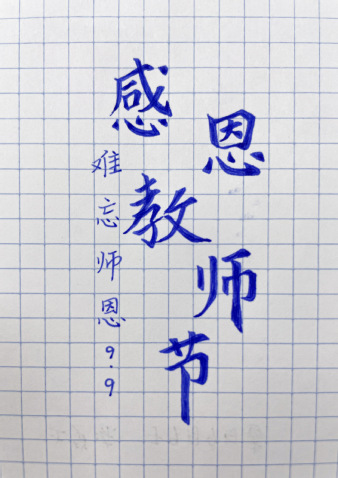 感恩教师节
难忘师恩9.9